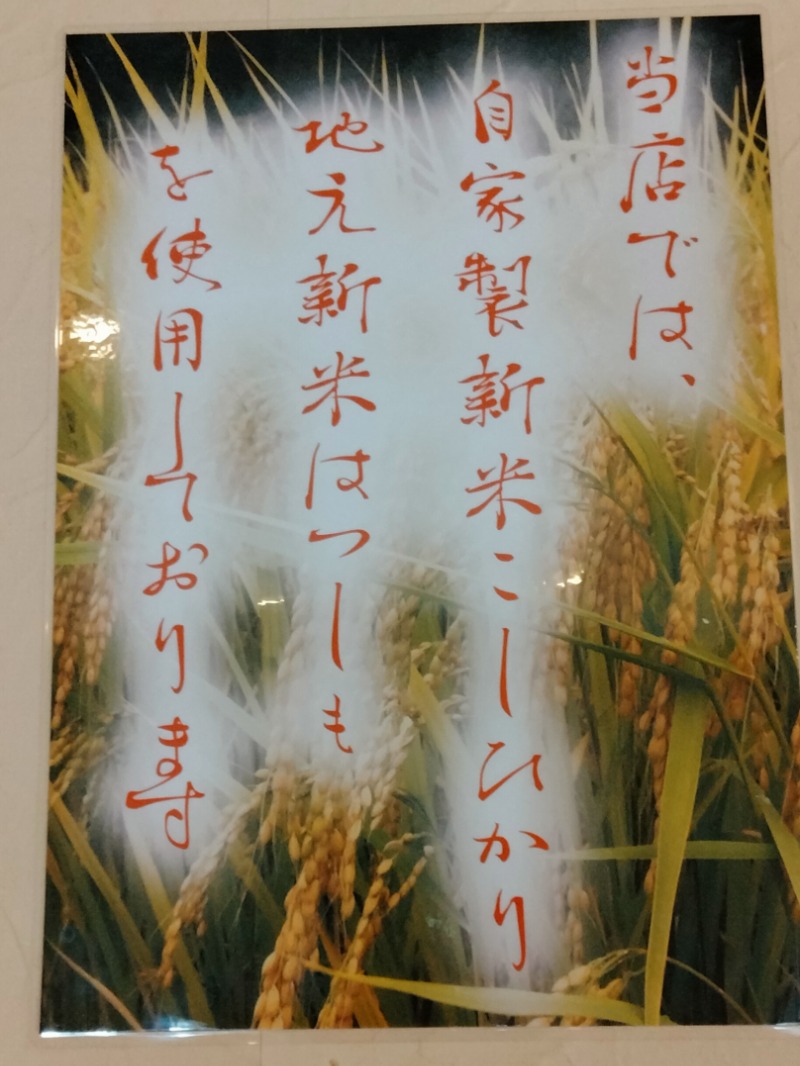 当店では、
自家製新米こしひかり
地元新米はつしも
を使用しております